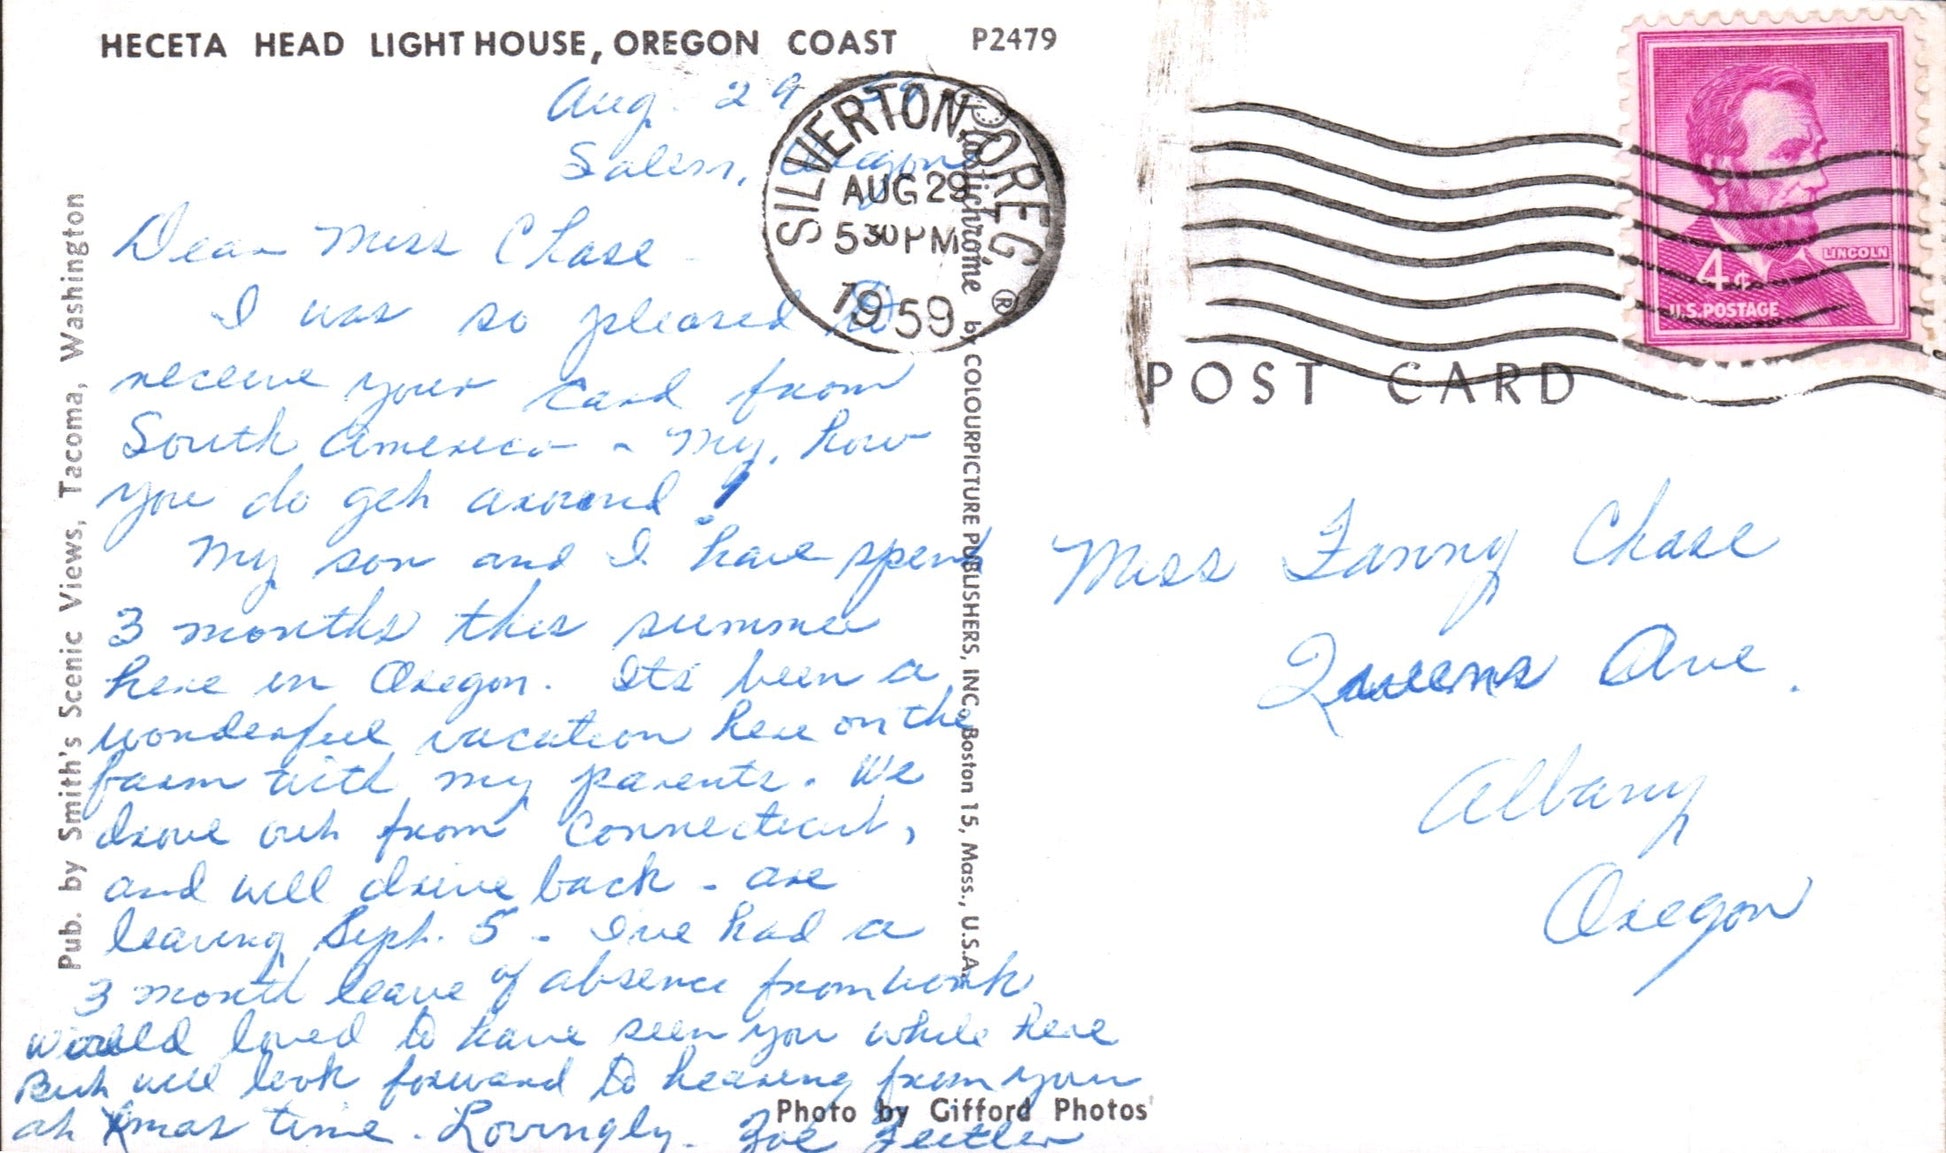 HECETA HEAD LIGHTHOUSE, OREGON COAST P2479
Aug. 29
Salem, Oregon
Dear Miss Chase -
I was so pleased to
receive your card from
South America - My, how
you do get around!
My son and I have spend
3 months this summer
here in Oregon. Its been a
wonderful vacation here on the
farm with my parents. We
drove out from Connecticut,
and will drive back - are
leaving Sept. 5 - Ive had a
3 month leave of absence from work
Would loved to have seen you while here
But will look forward to hearing from you
at Xmas time. Lovingly - Zoe
Pub. by Smith's Scenic Views, Tacoma, Washington
SILVERTON, OREG
AUG 29
5 30 PM
1959
Plastichrome ® by COLOURPICTURE PUBLISHERS, INC. Boston 15, Mass., U.S.A.
LINCOLN
4¢
U.S. POSTAGE
POST CARD
Miss Fanny Chase
Queens Ave.
Albany
Oregon
Photo by Gifford Photos